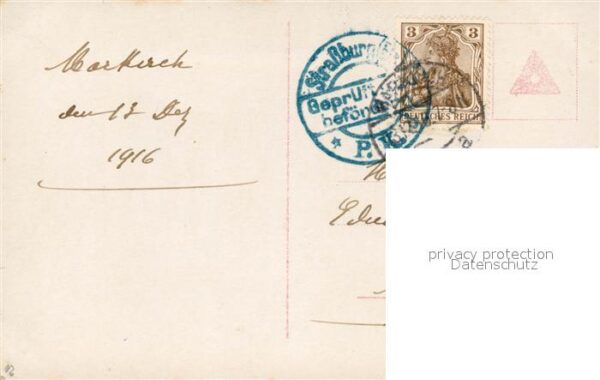 Markirch
den 13 Dez
1916
Straßburg
Geprüft
befördern
P.K.
3
DEUTSCHES REICH
privacy protection
Datenschutz